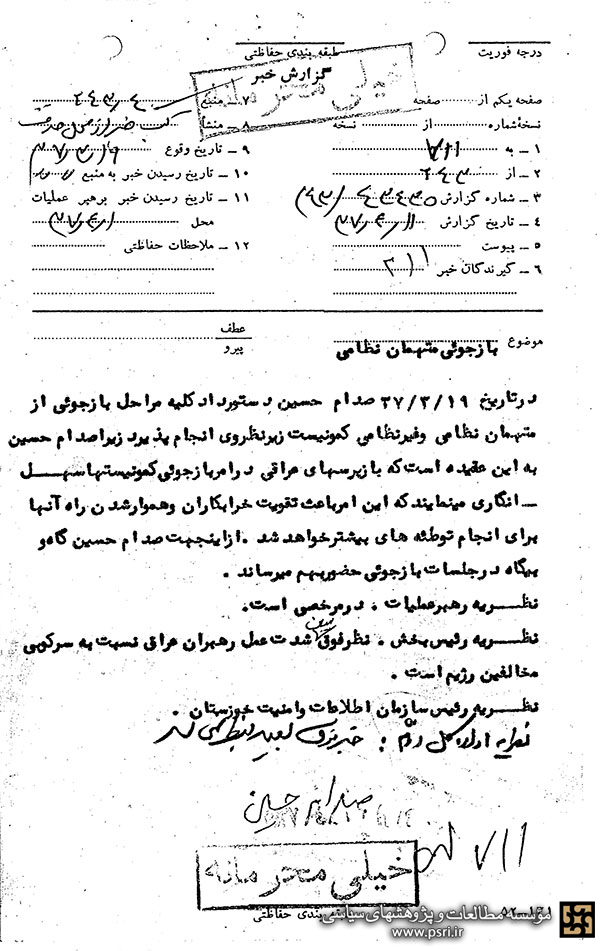 درجه فوریت
طبقه بندی حفاظتی
خیلی محرمانه
گزارش خبر
صفحه یکم از صفحه
نسخه شماره از نسخه
۱ – به ۷۱۱
۲ – از
۳ – شماره گزارش
۴ – تاریخ گزارش
۵ – پیوست
۶ – گیرندگان خبر ۳۱۱
۷ – منبع
۸ – منشا
۹ – تاریخ وقوع
۱۰ – تاریخ رسیدن خبر به منبع
۱۱ – تاریخ رسیدن خبر برهبر عملیات
محل
۱۲ – ملاحظات حفاظتی
موضوع بازجوئی متهمان نظامی
عطف
پیرو
در تاریخ ۳۷/۳/۱۹ صدام حسین دستور داد کلیه مراحل بازجوئی از
متهمان نظامی وغیرنظامی کمونیست زیرنظروی انجام پذیرد زیرا صدام حسین
به این عقیده است که بازپرسهای عراقی در امر بازجوئی کمونیستها سهل
– انگاری مینمایند که این امر باعث تقویت خرابکاران وهموار شدن راه آنها
برای انجام توطئه های بیشتر خواهد شد . از اینجهت صدام حسین گاه و
بیگاه در جلسات بازجوئی حضور بهم میرساند .
نظریه رهبر عملیات . در مرخصی است .
نظریه رئیس بخش . نظر فوق شدت عمل رهبران عراق نسبت به سرکوبی
مخالفین رژیم است .
نظریه رئیس سازمان اطلاعات وامنیت خوزستان .
نظریه اداره کل دوم :
صدام حسین
۷۱۱
خیلی محرمانه
بندی حفاظتی
مؤسسه مطالعات و پژوهشهای سیاسی
www.psri.ir